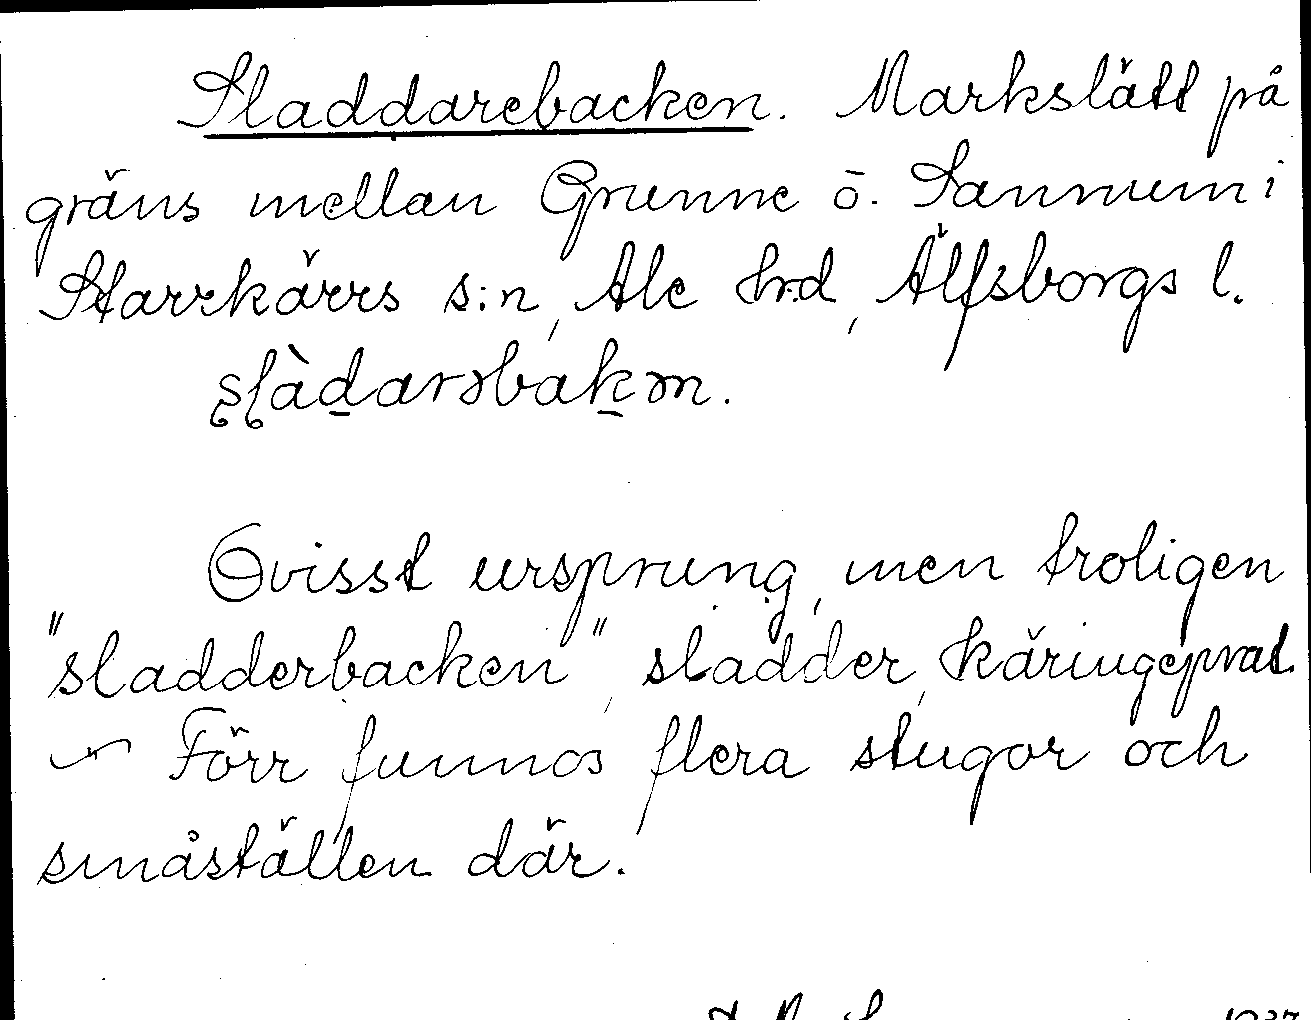 Sladdarebacken. Markslätt på
gräns mellan Grunne o. Sannum i
Starrkärrs s:n, Ale hrd, Älfsborgs l.
Ovisst ursprung, men troligen
"sladderbacken", sladder, käringeprat.
Förr funnos flera stugor och
småställen där.